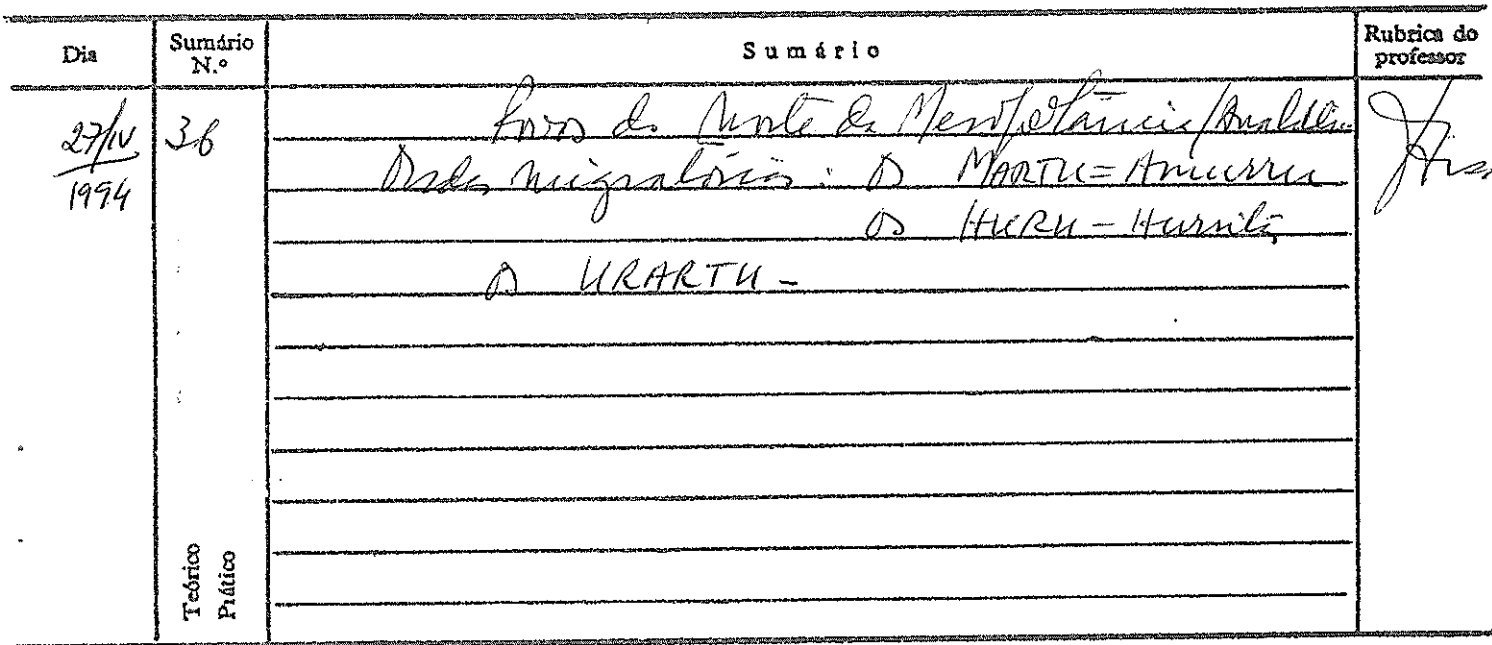 Dia
Sumário N.º
Sumário
Rubrica do professor
27/IV 1994
36
Povos do Norte da Mesopotâmia/
Ondas migratórias: Os MARTU=Amurru
Os HURU-Hurritas
Os URARTU-
Teórico
Prático